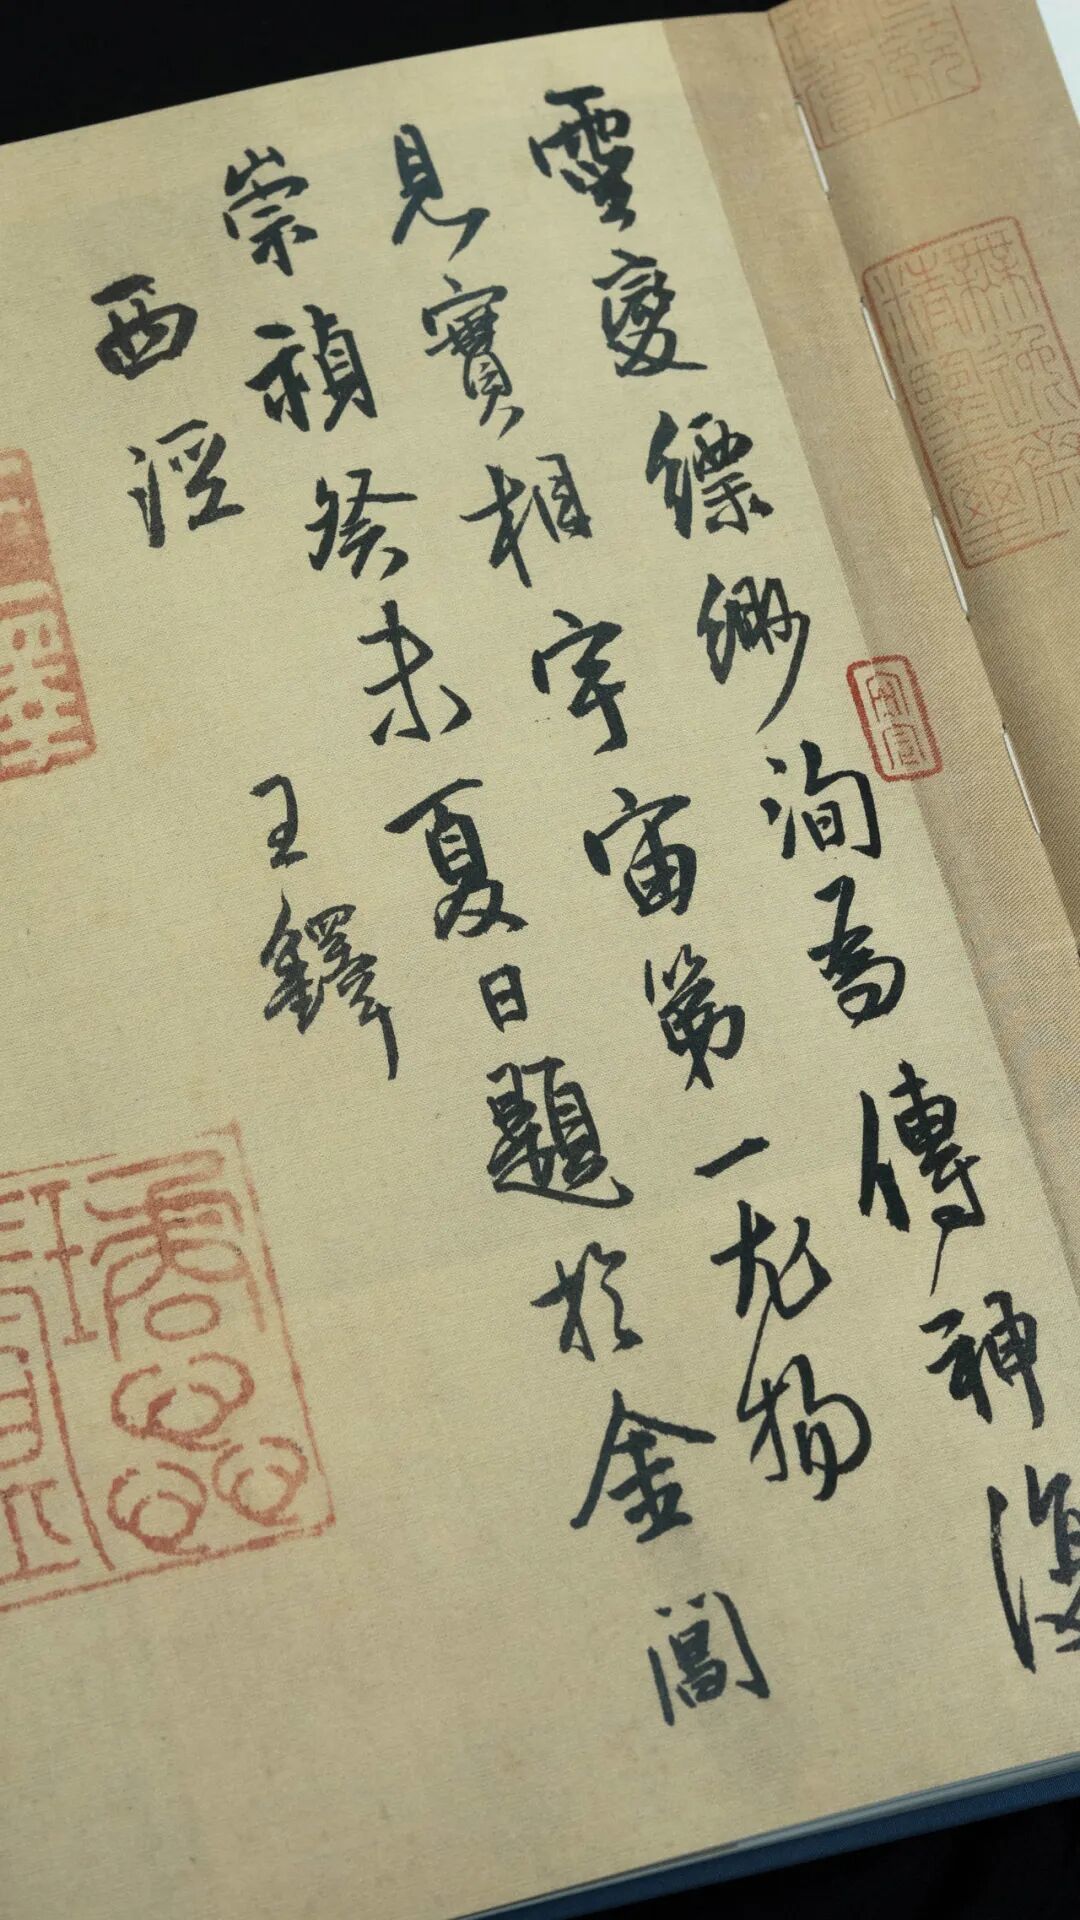 靈變縹緲洵為傳神復
見寶相宇宙第一尤物
崇禎癸未夏日題於金閶
西
王鐸